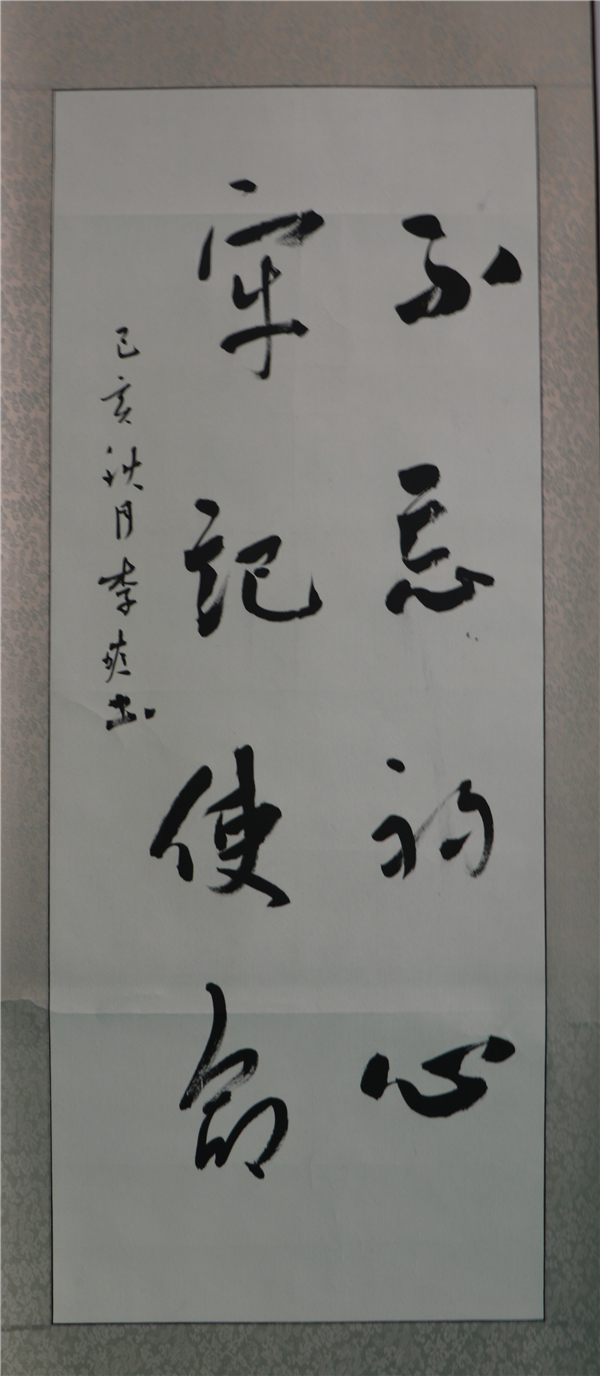 不忘初心
牢记使命
己亥秋月李爽书